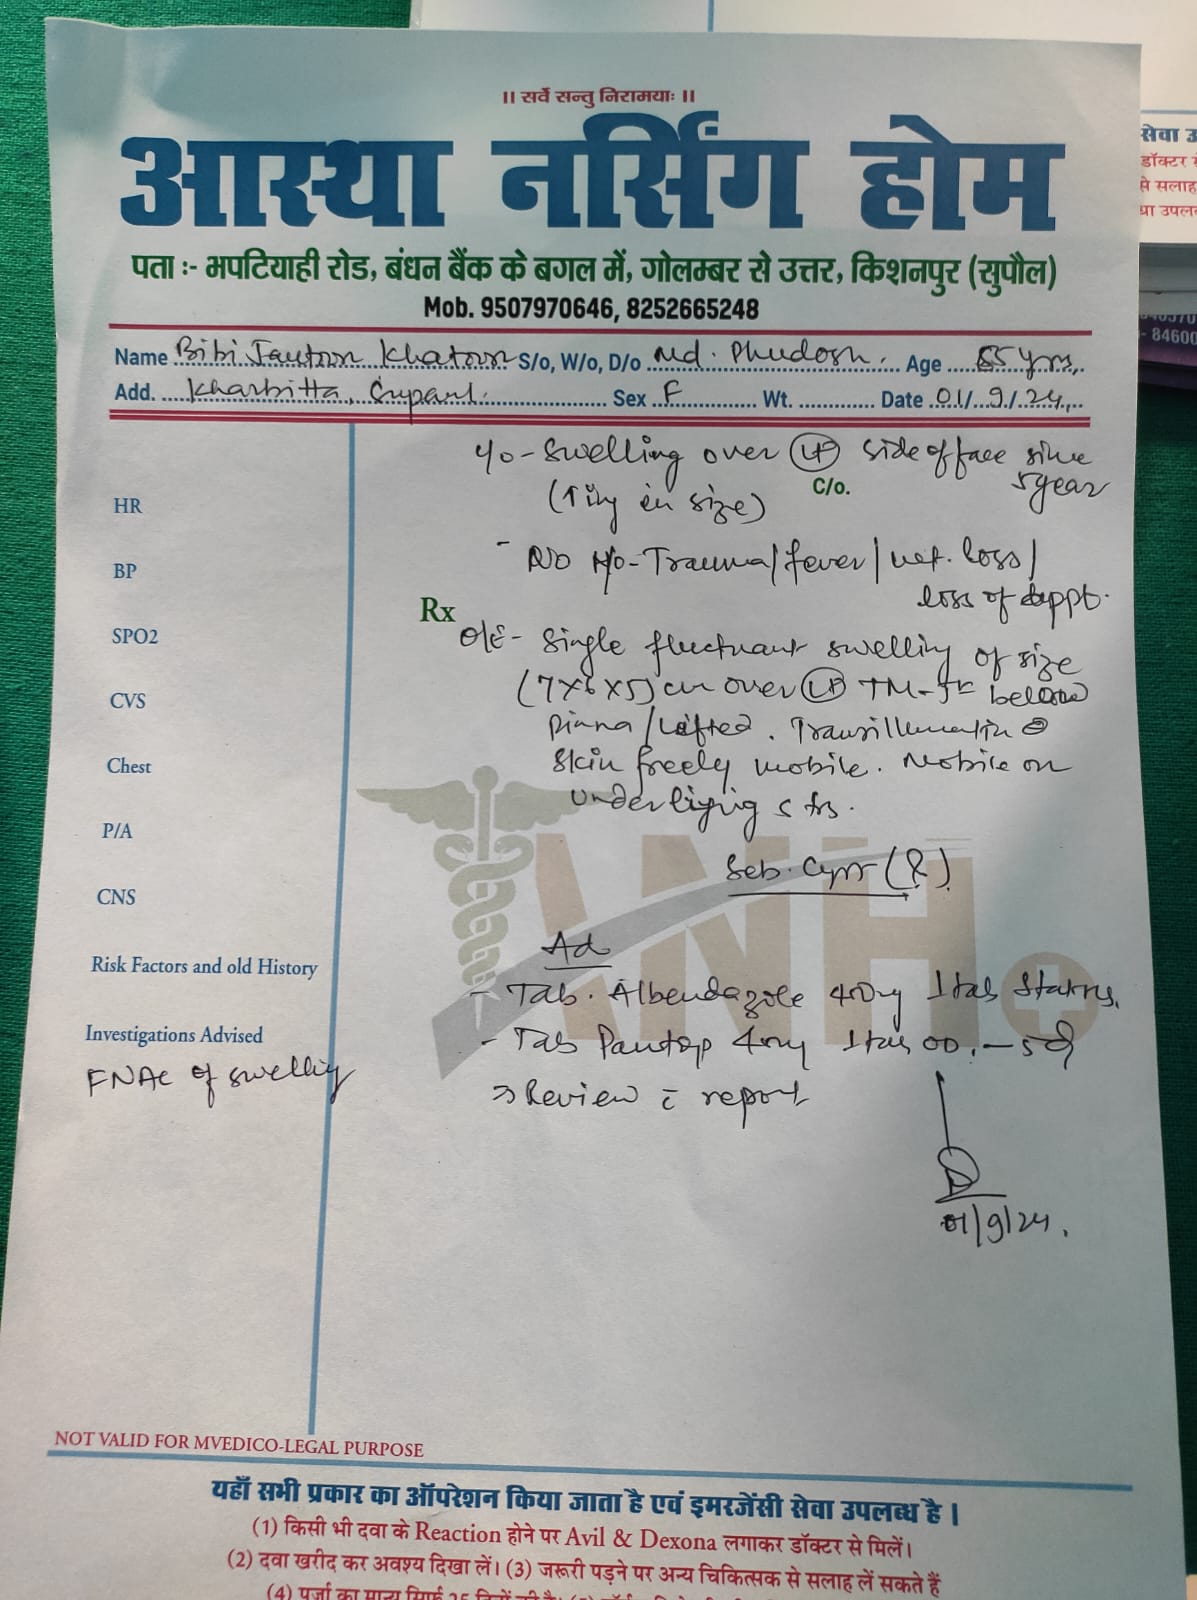 ।। सर्वे सन्तु निरामयाः ।।
आस्था नर्सिंग होम
पता :- भपटियाही रोड, बंधन बैंक के बगल में, गोलम्बर से उत्तर, किशनपुर (सुपौल)
Mob. 9507970646, 8252665248
Name Bibi Khatoon S/o, W/o, D/o Md. Age 65 yrs,
Add. Kharbitta, Supaul. Sex F Wt. Date 01/9/24,
swelling over Lt side of face since
5 year
C/o.
(in size)
- No H/o - Trauma/fever/wt. loss/
loss of appt.
Rx
O/E - Single fluctuant swelling of size
(7x6x5) cm over Lt TM-Jn below
Pinna / Lifted. Transillumination ⊖
Skin freely mobile. Mobile on
underlying strs.
Seb. Cyst (R)
Ad
- Tab. Albendazole 400mg 1 tab
- Tab Pantop 40mg 1 tab OD. - 5d
⇒ Review c̄ report
01/9/24.
HR
BP
SPO2
CVS
Chest
P/A
CNS
Risk Factors and old History
Investigations Advised
FNAC of swelling
NH
NOT VALID FOR MVEDICO-LEGAL PURPOSE
यहाँ सभी प्रकार का ऑपरेशन किया जाता है एवं इमरजेंसी सेवा उपलब्ध है।
(1) किसी भी दवा के Reaction होने पर Avil & Dexona लगाकर डॉक्टर से मिलें।
(2) दवा खरीद कर अवश्य दिखा लें। (3) जरूरी पड़ने पर अन्य चिकित्सक से सलाह लें सकते हैं
सेवा
डॉक्टर
से सलाह